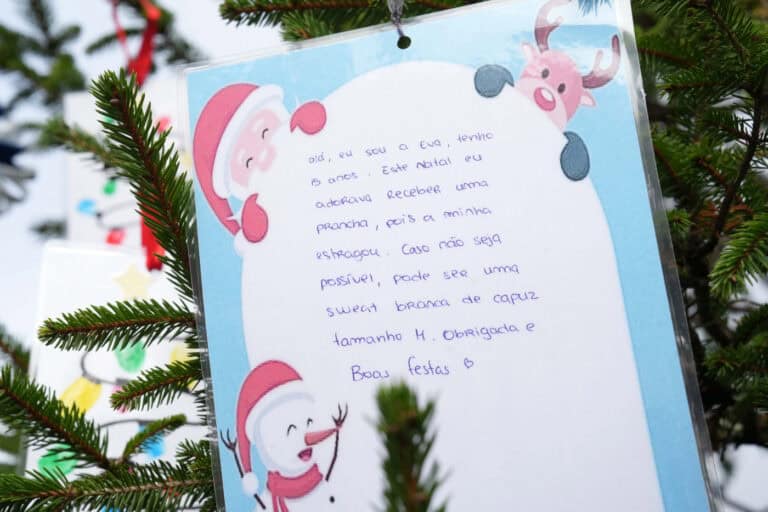 olá, eu sou a Eva, tenho
15 anos. Este Natal eu
adorava receber uma
prancha, pois a minha
estragou. Caso não seja
possível, pode ser uma
sweat branca de capuz
tamanho M. Obrigada e
Boas festas ♡